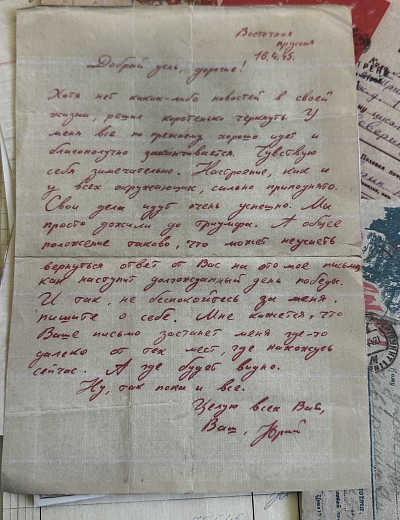 Восточная
Пруссия
16.4.45.
Добрый день, дорогие!
Хотя нет каких-либо новостей в своей
жизни, решил коротенько черкнуть. У
меня все по прежнему хорошо идет и
благополучно заканчивается. Чувствую
себя замечательно. Настроение, как и
у всех окружающих, сильно приподнято.
Свои дела идут очень успешно. Мы
просто дожили до триумфа. А общее
положение таково, что может неуспеть
вернуться ответ от Вас на это мое письмо,
как наступит долгожданный день победы.
И так, не беспокойтесь за меня,
пишите о себе. Мне кажется, что
Ваше письмо застанет меня где-то
далеко от тех мест, где нахожусь
сейчас. А где будет видно.
Ну, так пока и все.
Целую всех Вас,
Ваш, Юрий